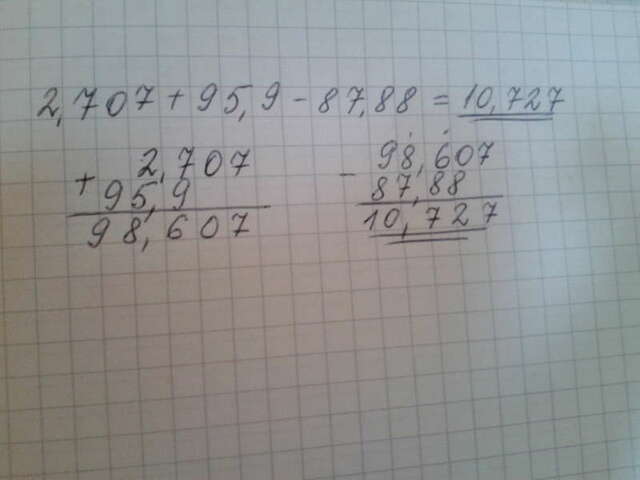 2,707 + 95,9 - 87,88 = 10,727
2,707
+ 95,9
98,607
- 98,607
87,88
10,727